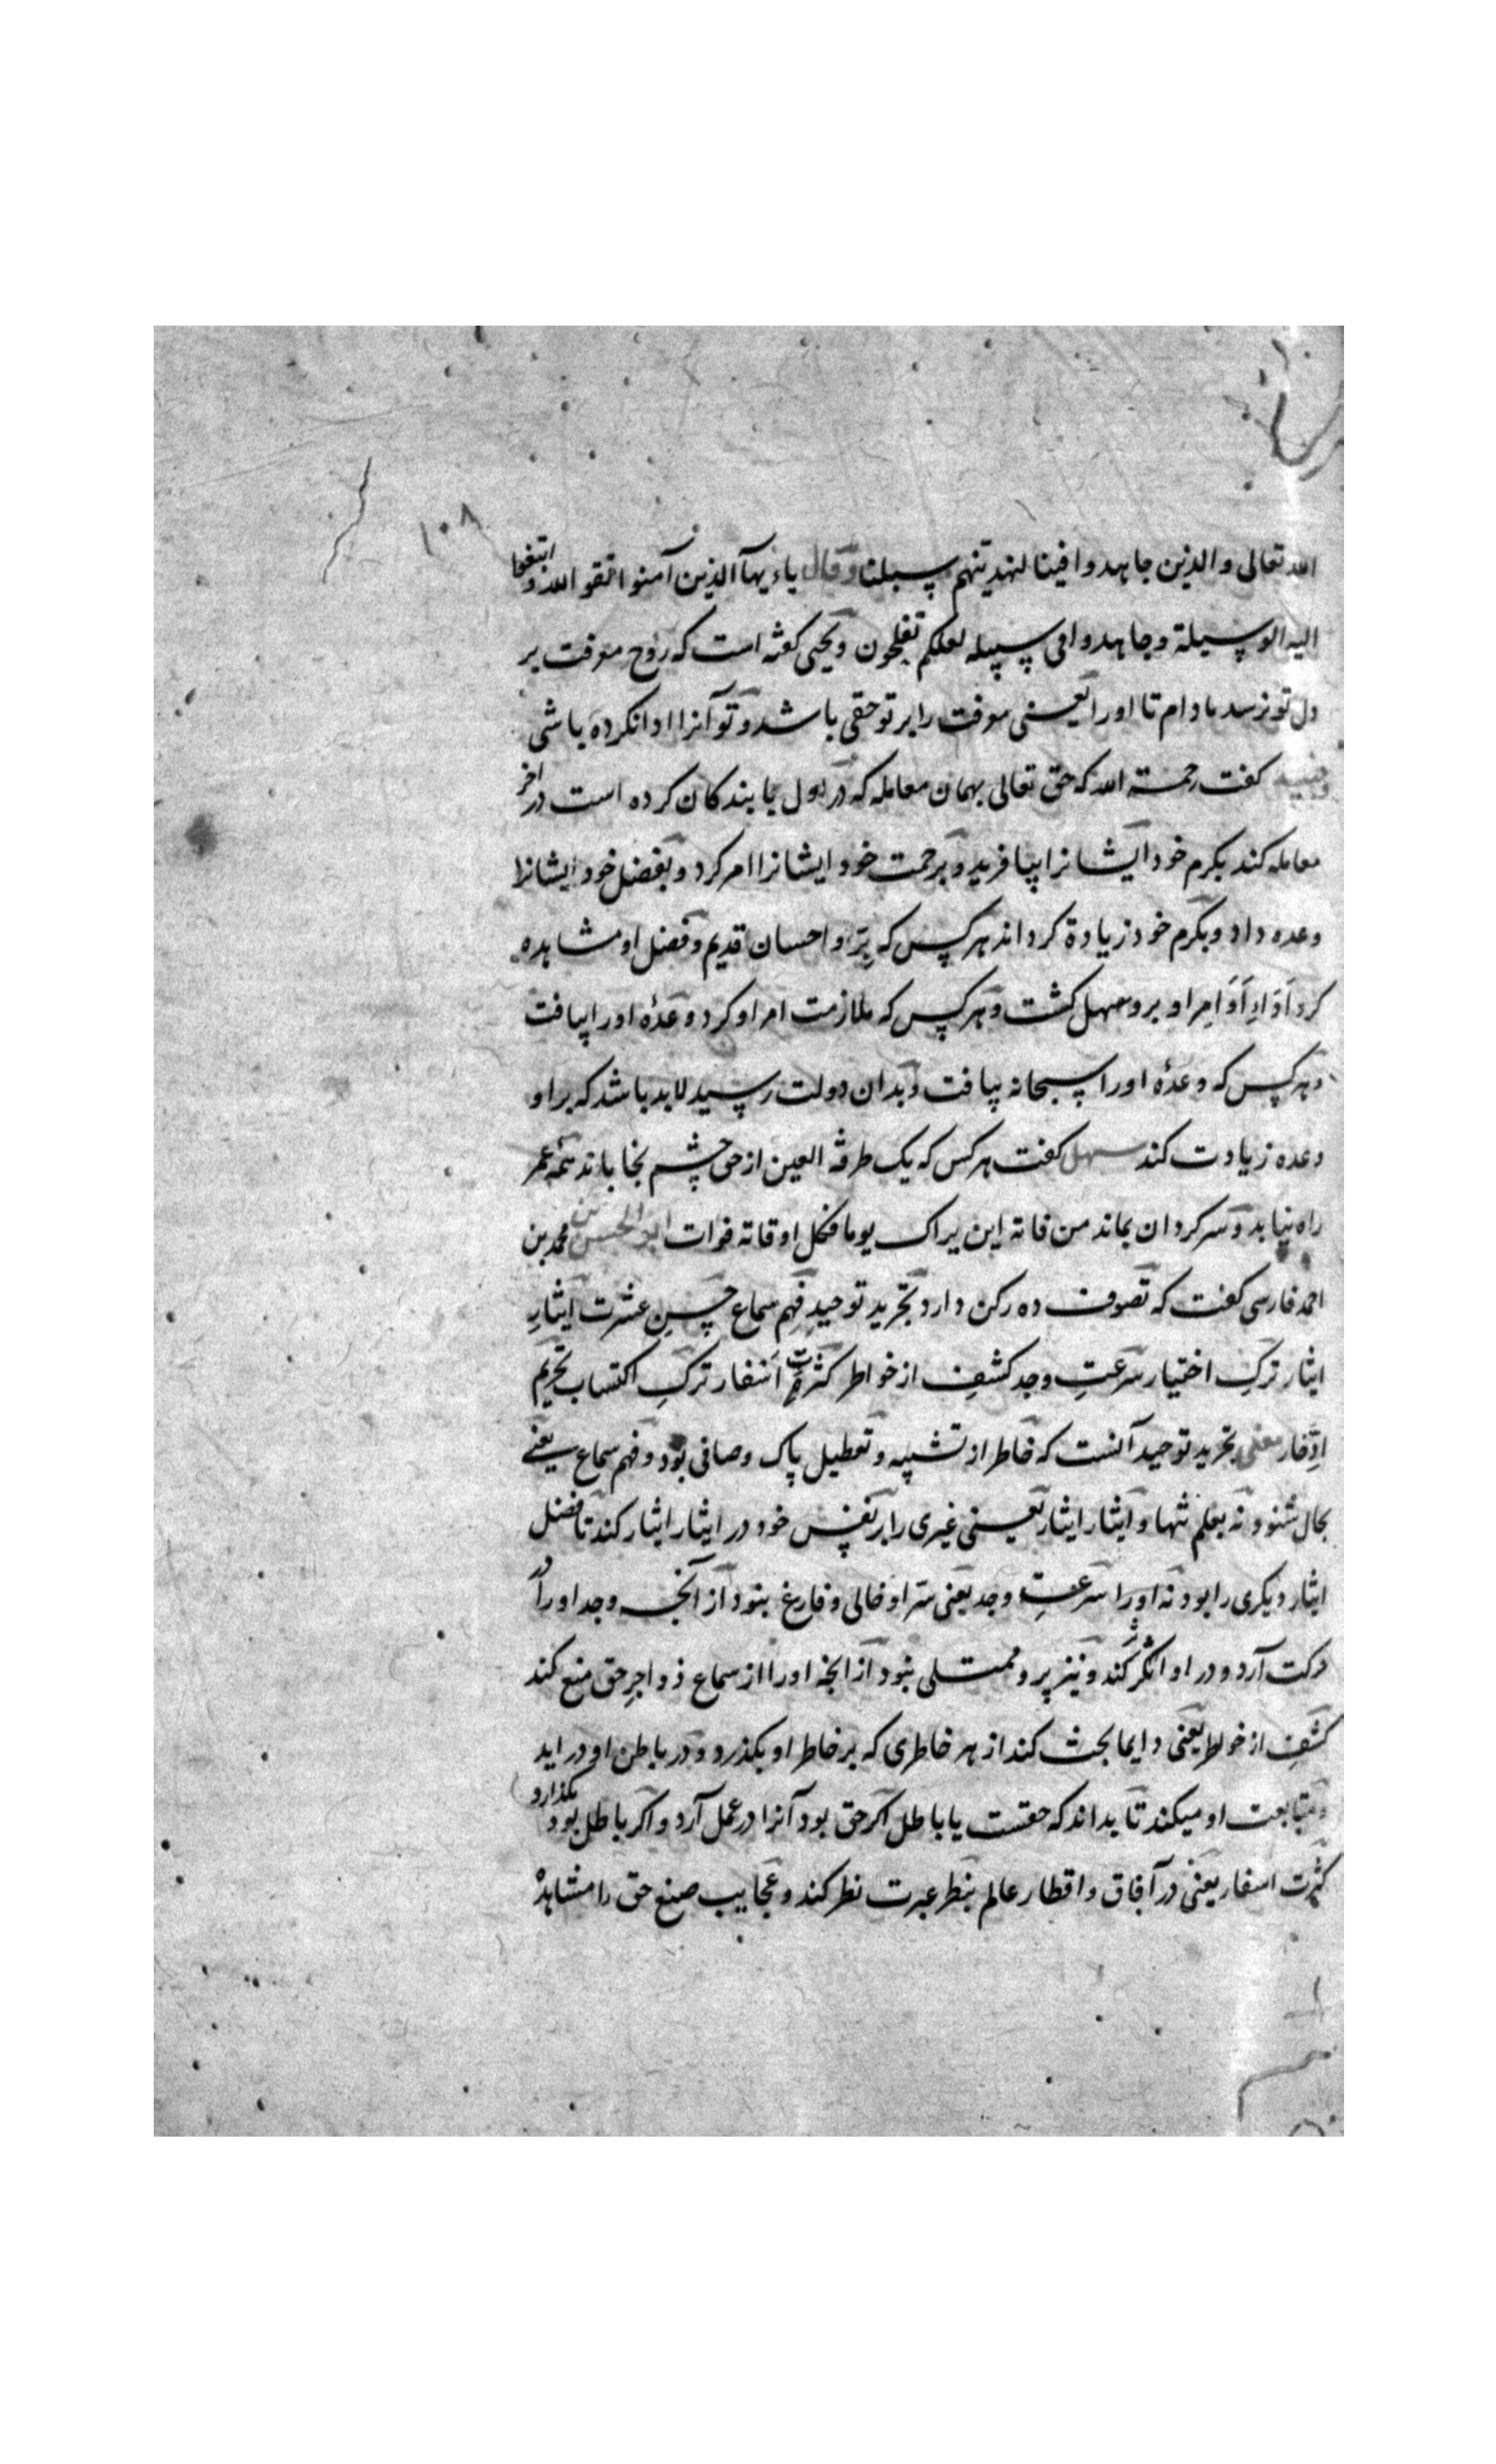 ۱۰۸
الله تعالی والذین جاهدوا فینا لنهدینهم سبلنا وقال یاءیها الذین آمنوا اتقوا الله و ابتغوا
الیه الوسیلة وجاهدوا فی سبیله لعلکم تفلحون و یحیی گفته است که روح معرفت بر
دل تو نرسد مادام تا اورا یعنی معرفت را بر تو حقی باشد و تو آنرا ادا نکرده باشی
جنید گفت رحمة الله که حق تعالی بهمان معامله که در اول با بندکان کرده است در اخر
معامله کند بکرم خود ایشانرا بیافرید و برحمت خود ایشانرا امر کرد و بفضل خود ایشانرا
وعده داد و بکرم خود زیادة کرداند هر کس که بِرّ و احسان قدیم و فضل او مشاهده
کرد اَدَاءِ اَوَامِر او برو سهل کشت و هر کس که ملازمت امر او کرد وعدهٔ اورا بیافت
و هر کس که وعدهٔ اورا سبحانه بیافت و بدان دولت رسید لابد باشد که بر او
وعده زیادت کند سهل کفت هر کس که یک طرفة العین از حق چشم بخاباند همه عمر
راه نیابد و سرکردان بماند من فاته این یراک یوما فکل اوقاته فوات ابو الحسن محمد بن
احمد فارسی کفت که تصوف ده رکن دارد تجرید توحیدِ فهمِ سماع حسنِ عشرت ایثارِ
ایثار ترکِ اختیار سرعتِ وجد کشفِ از خواطر کثرتِ اسفار ترکِ اکتساب تحریم
ادّخار معنی تجرید توحید آنست که خاطر از تشبیه و تعطیل پاک و صافی بود و فهم سماع یعنی
بحال شنود نه بعلم تنها و ایثار ایثار یعنی غیری را بر نفس خود در ایثار ایثار کند تا فضل
ایثار دیکری را بود نه اورا سرعتِ وجد یعنی سر او خالی و فارغ بنود از آنچه وجد اورا در
حرکت آرد و در او اثر کند و نیز پر و ممتلی نبود از انچه اورا از سماع زواجرِ حق منع کند
کشفِ از خواطر یعنی دایما بحث کند از هر خاطری که بر خاطر او بکذرد و در باطن او در اید
و متابعت او میکند تا بداند که حقست یا باطل اکر حق بود آنرا در عمل آرد و اکر باطل بود بکذارد
کثرت اسفار یعنی در آفاق و اقطار عالم بنظر عبرت نظر کند و عجایب صنع حق را مشاهدهٔ